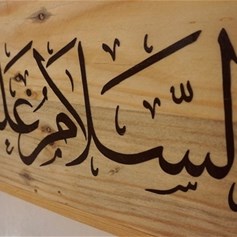 السّلامُ عل